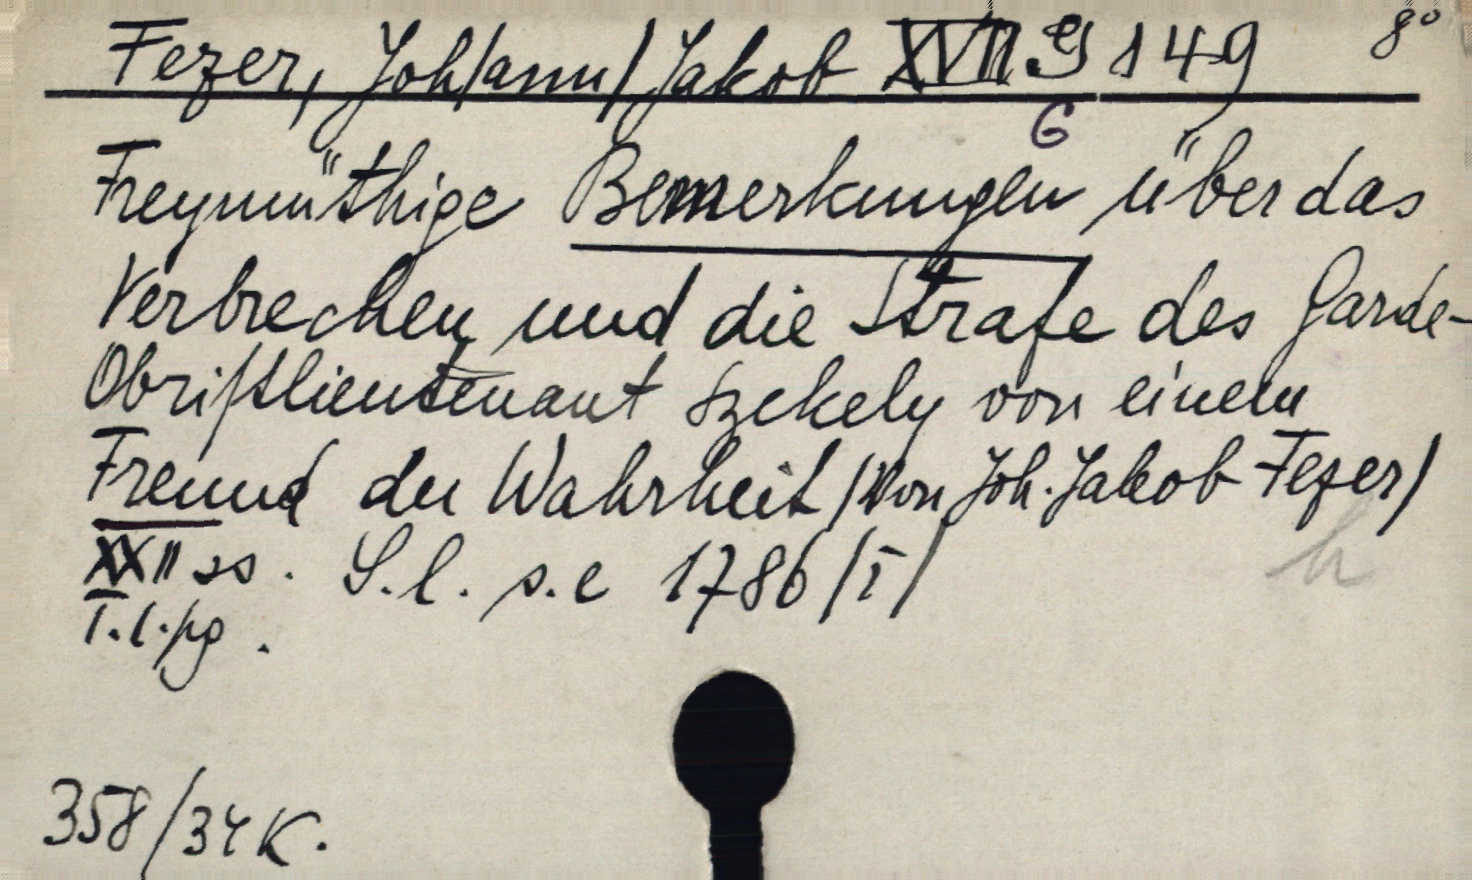 Fezer, Joh/ann/ Jakob XVII G 149 8°
G
Freymüthige Bemerkungen über das
Verbrechen und die Strafe des Garde-
Obristlieutenant Szekely von einem
Freund der Wahrheit /Von Joh. Jakob Fezer/
XXII ss. S.l. s.e 1786 /I/
T.l.pg.
h
358/34K.